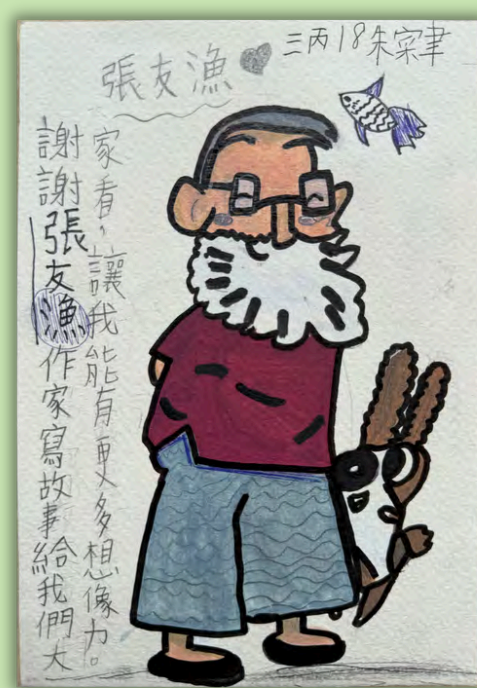 三丙18朱寀聿
張友漁
謝謝張友漁作家寫故事給我們大
家看，讓我能有更多想像力。